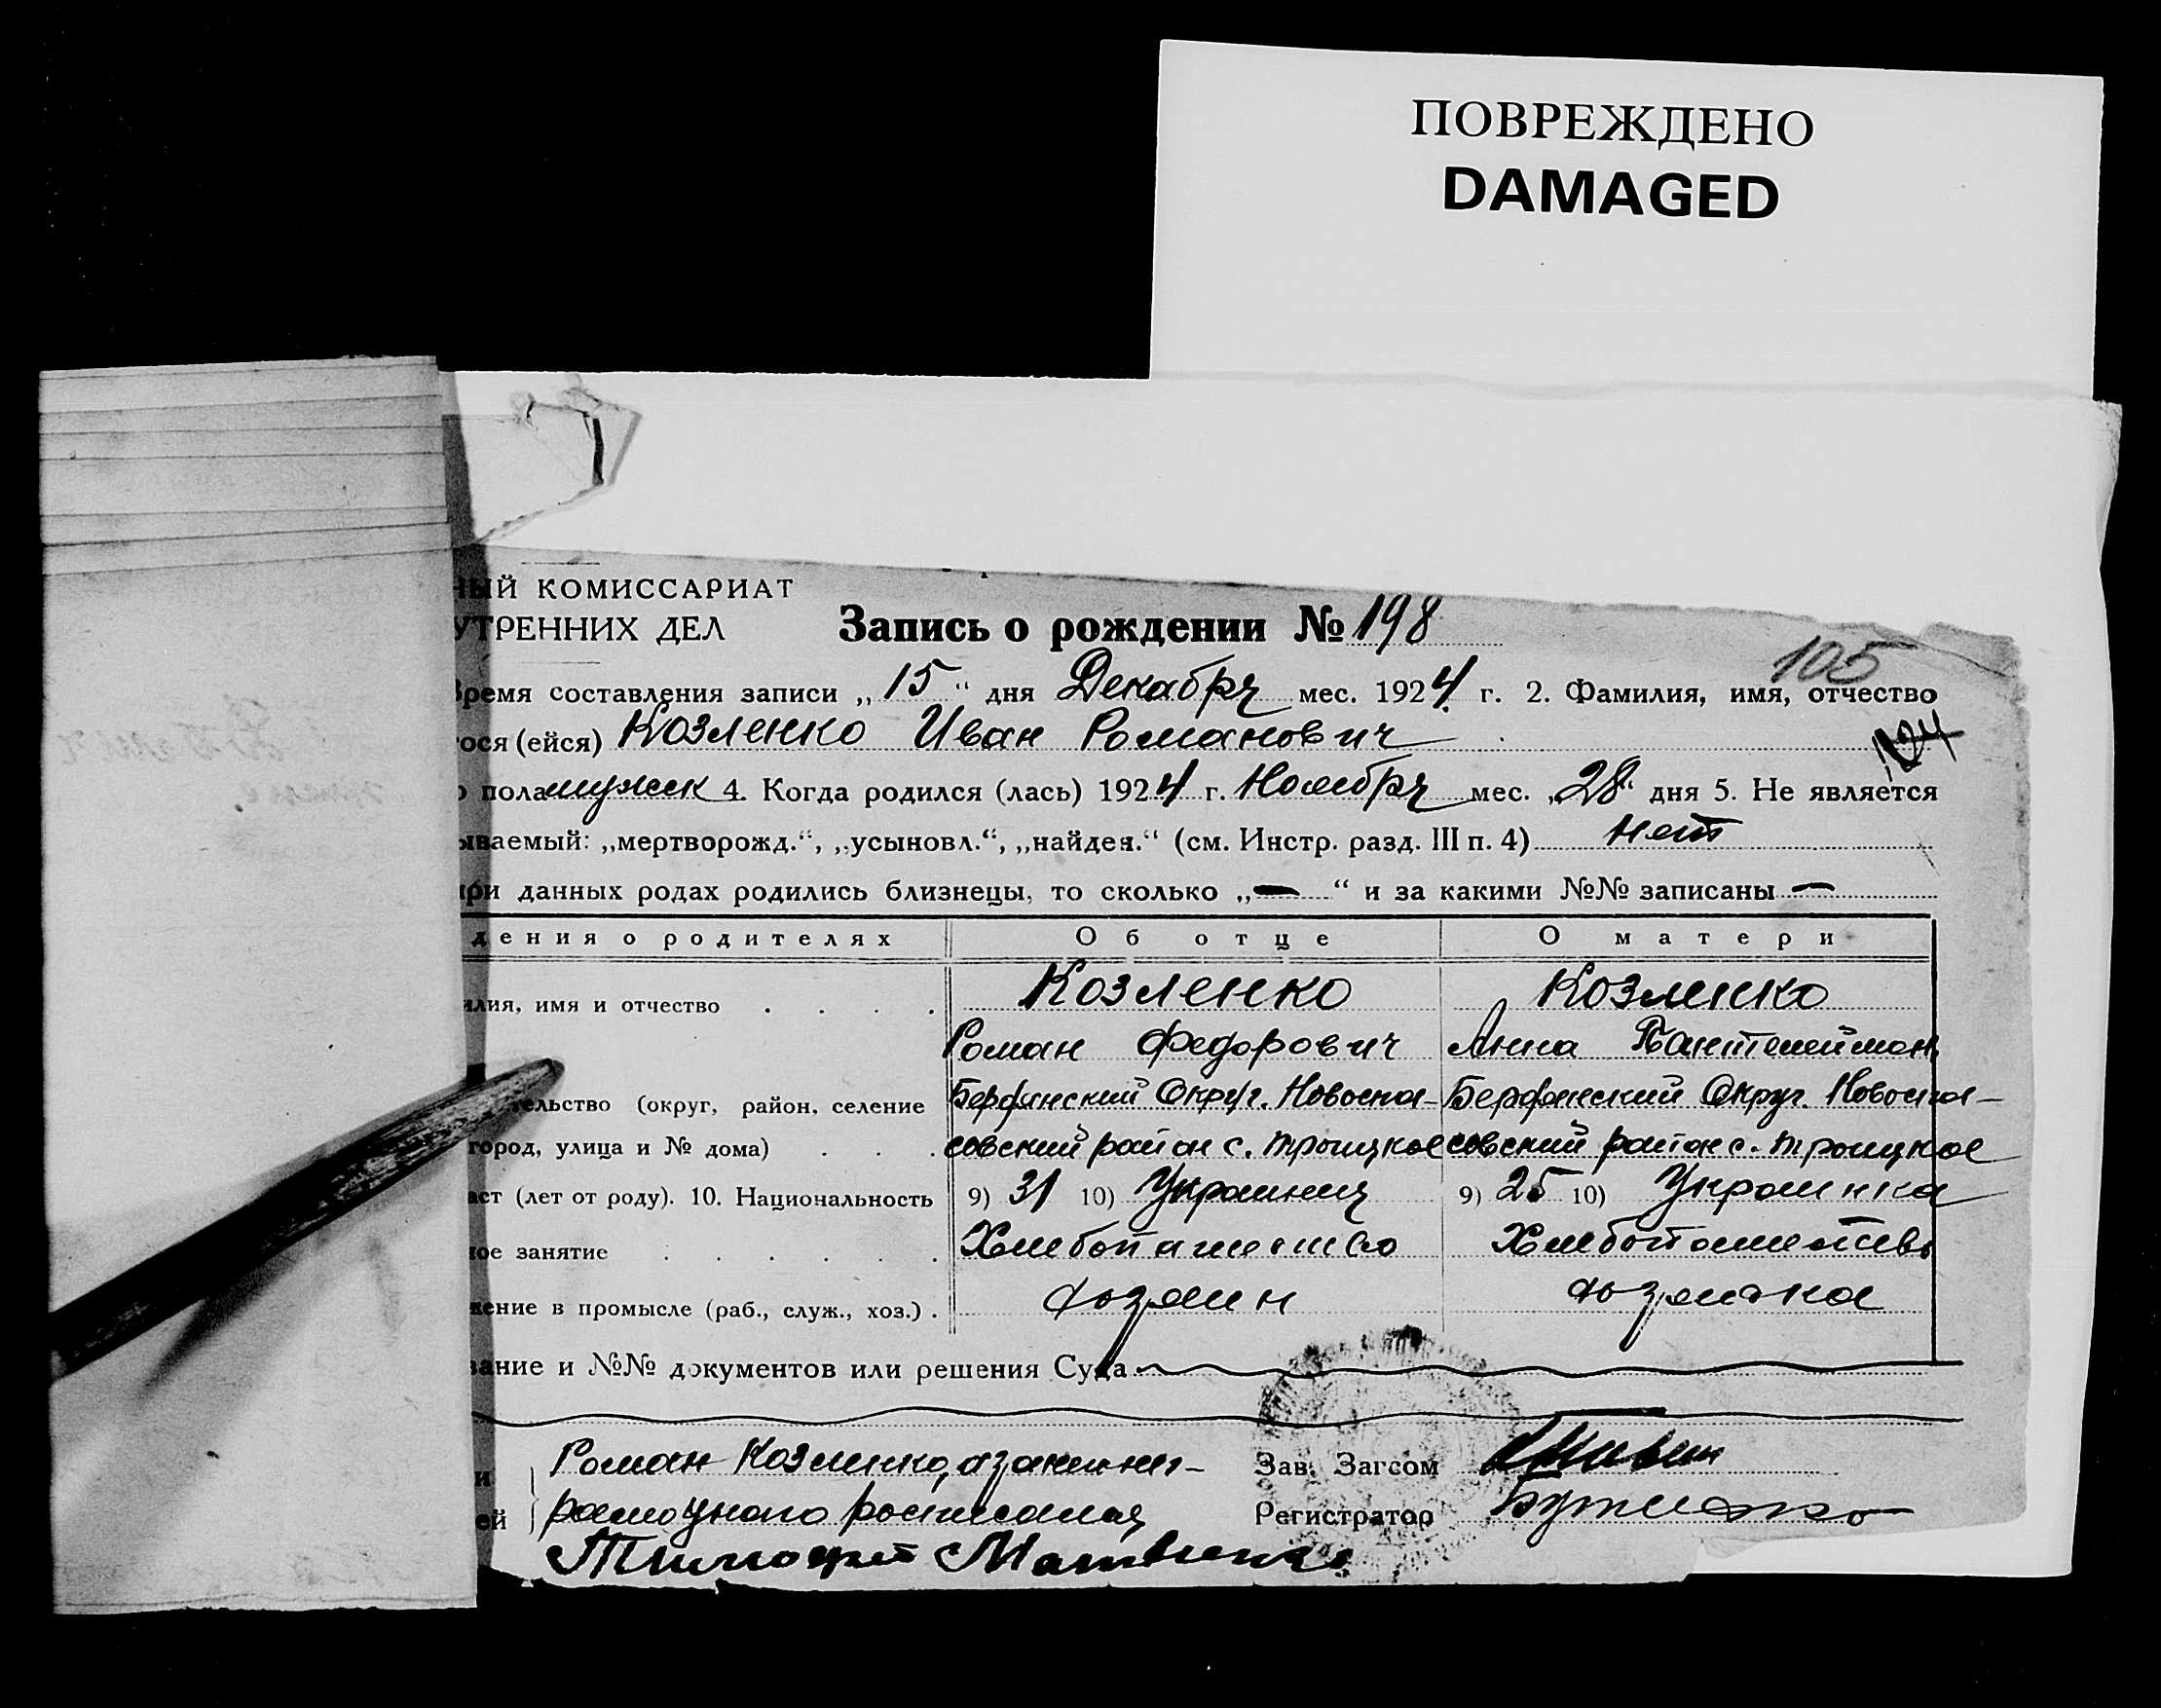 ПОВРЕЖДЕНО
DAMAGED
НЫЙ КОМИССАРИАТ
УТРЕННИХ ДЕЛ
Запись о рождении № 198
105
Время составления записи „15“ дня Декабря мес. 1924 г. 2. Фамилия, имя, отчество
гося (ейся) Козленко Иван Романович
124
о пола мужск 4. Когда родился (лась) 1924 г. Ноября мес. „28“ дня 5. Не является
ываемый: „мертворожд.“, „усыновл.“, „найден.“ (см. Инстр. разд. III п. 4) нет
при данных родах родились близнецы, то сколько „—“ и за какими №№ записаны —
дения о родителях Об отце О матери
илия, имя и отчество . . . . Козленко Козленко
Роман Федорович Анна Пантелеймон.
тельство (округ, район, селение Бердянский Округ. Новоспа- Бердянский Округ. Новоспа-
город, улица и № дома) . . . совский район с. Троицкое совский район с. Троицкое
аст (лет от роду). 10. Национальность 9) 31 10) Украинец 9) 25 10) Украинка
ное занятие . . . . . . Хлебопашество Хлебопашество
жение в промысле (раб., служ., хоз.) . хозяин хозяйка
вание и №№ документов или решения Суда
и Роман Козленко, а за неим- Зав. Загсом
ей Регистратор
Тимофей Матвиенко